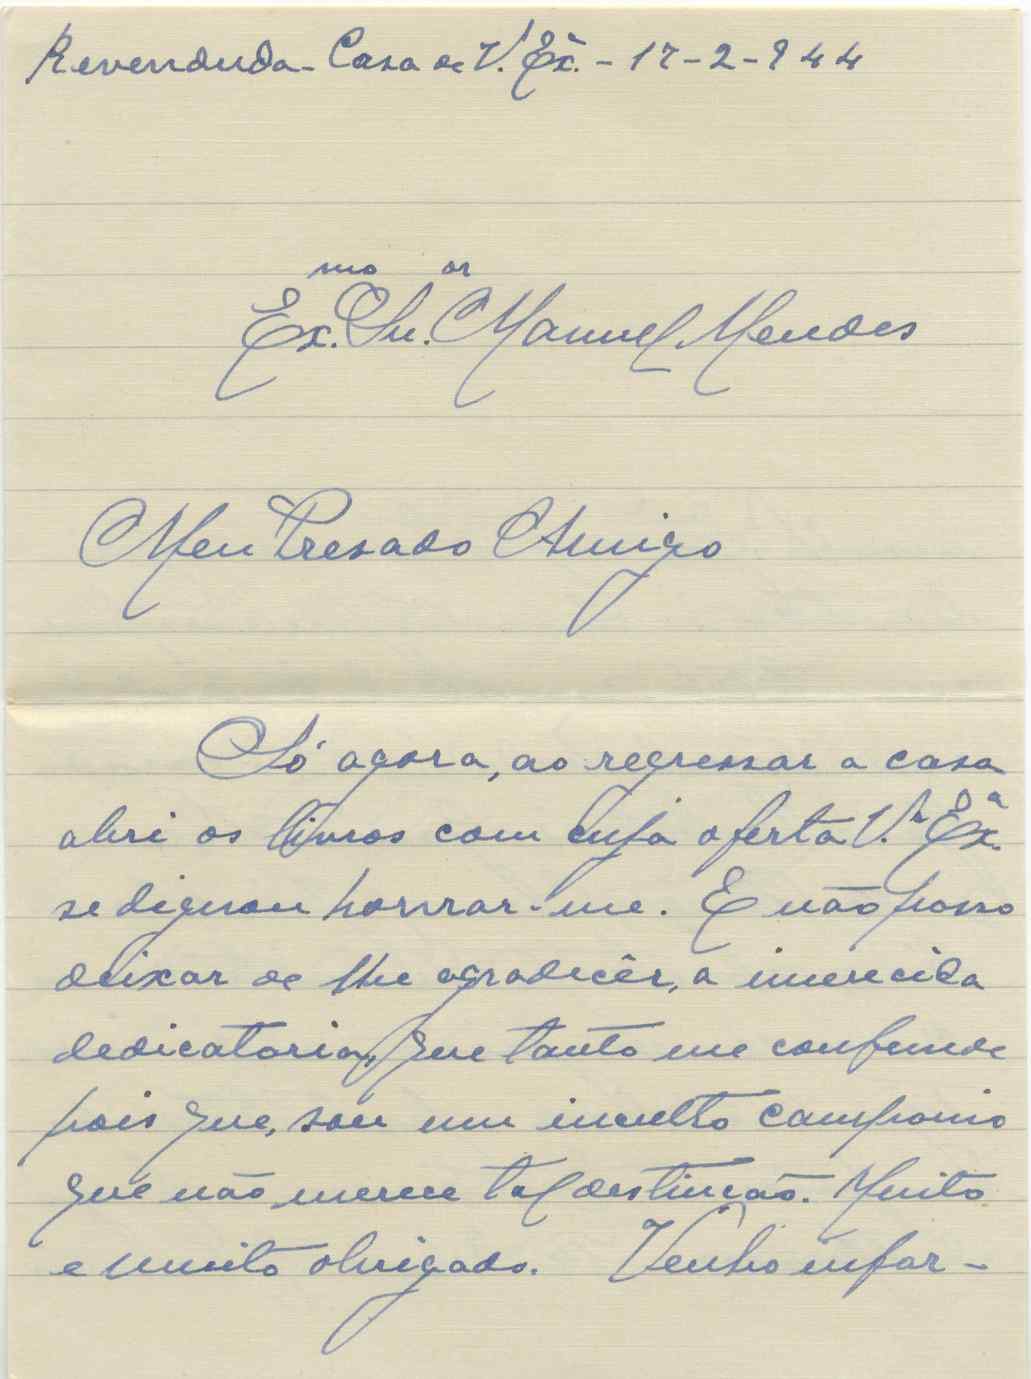 Revenduda - Casa de V. Exª. - 17-2-944
Ex.mo Snr.or Manuel Mendes
Meu Presado Amigo
Só agora, ao regressar a casa
abri os livros com cuja oferta V.ª Ex.ª
se dignou honrar-me. E não posso
deixar de lhe agradecêr, a imerecida
dedicatoria, que tanto me confunde
pois que, sou um inculto camponio
que não merece tal destincão. Muito
e muito obrigado. Venho infor-